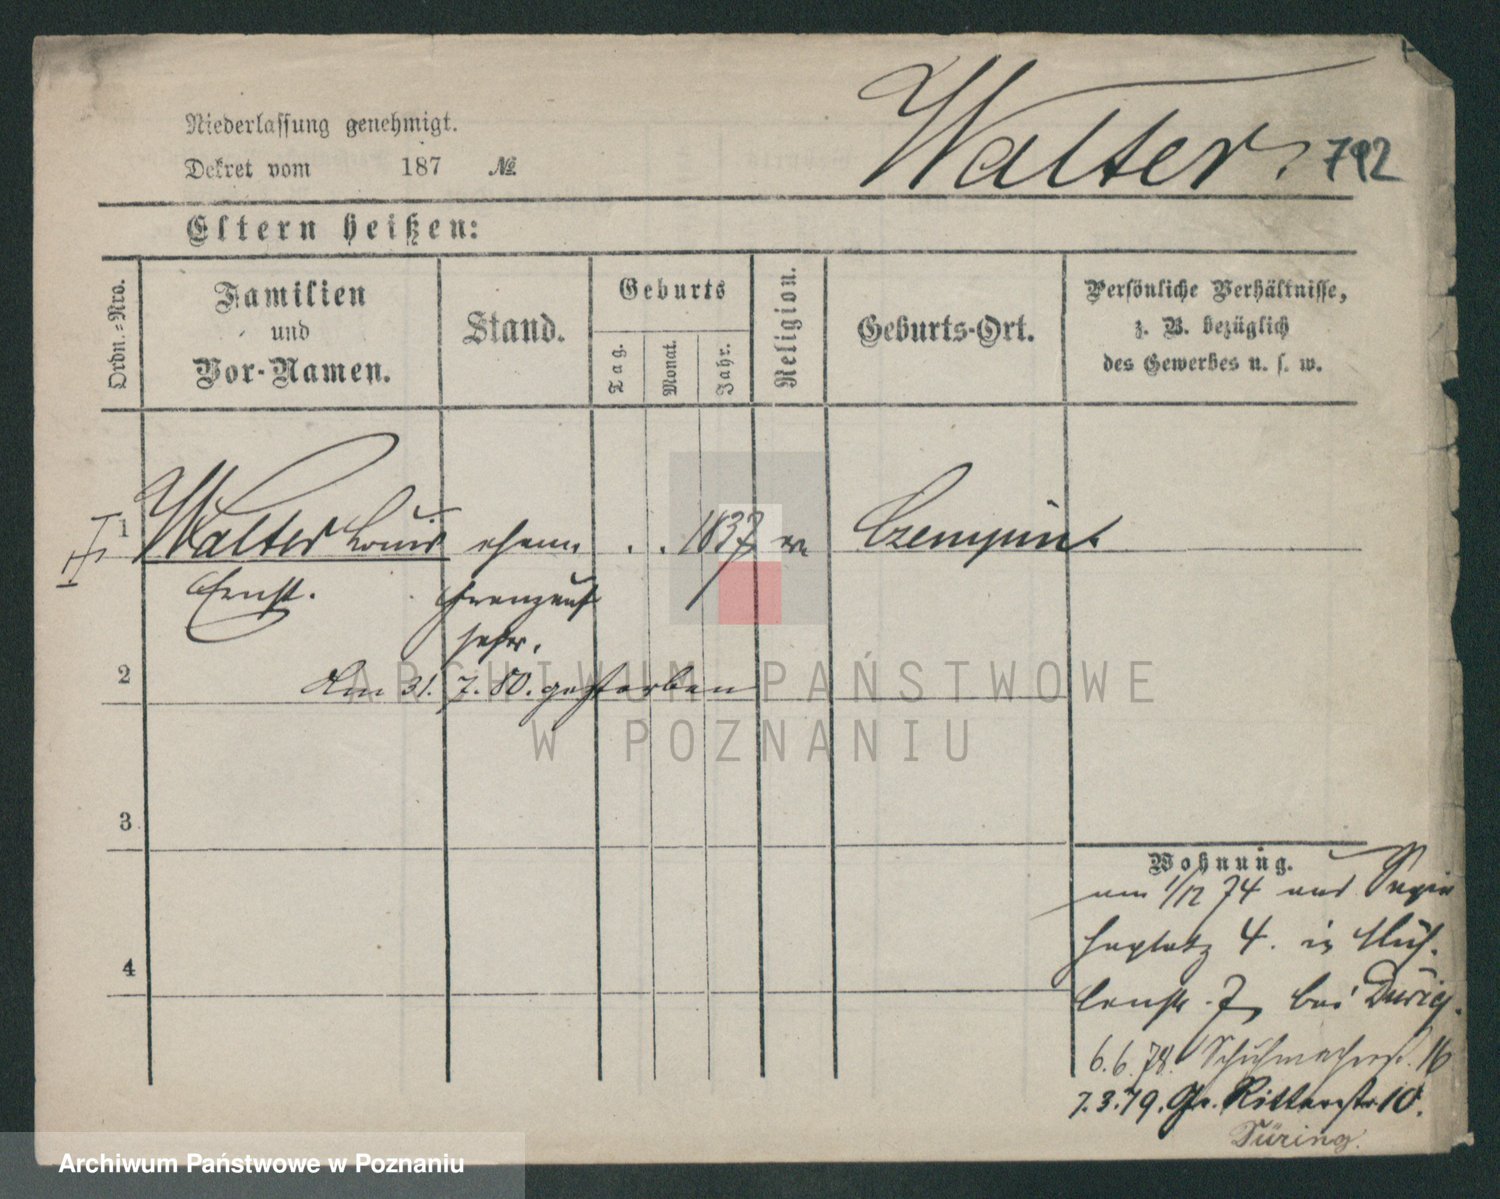 Niederlassung genehmigt.
Dekret vom 187 №
Walter. 792
Eltern heißen:
Ordn.-Nro.
Familien
und
Vor-Namen.
Stand.
Geburts
Tag.
Monat.
Jahr.
Religion.
Geburts-Ort.
Persönliche Verhältnisse,
z. B. bezüglich
des Gewerbes u. s. w.
1 Walter Louis ehem. . . 1837 Czempin
Ernst.
2
Am 31. 7. 80. gestorben
3
4
Wohnung.
am 1/12 74 aus
4. in Müh-
lenstr. 7, bei
6.6.78. Schuhmacherstr. 16
7.3.79. Gr. Ritterstr 10.
Düring.
ARCHIWUM PAŃSTWOWE
W POZNANIU
Archiwum Państwowe w Poznaniu